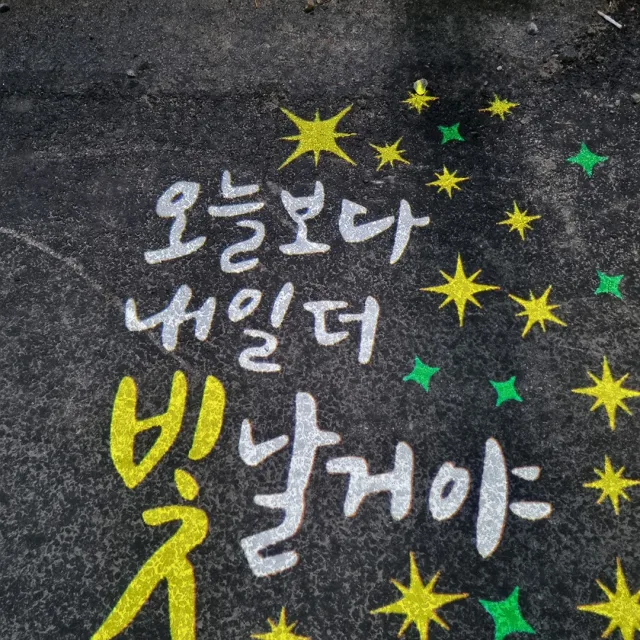 오늘보다
내일 더
빛날거야